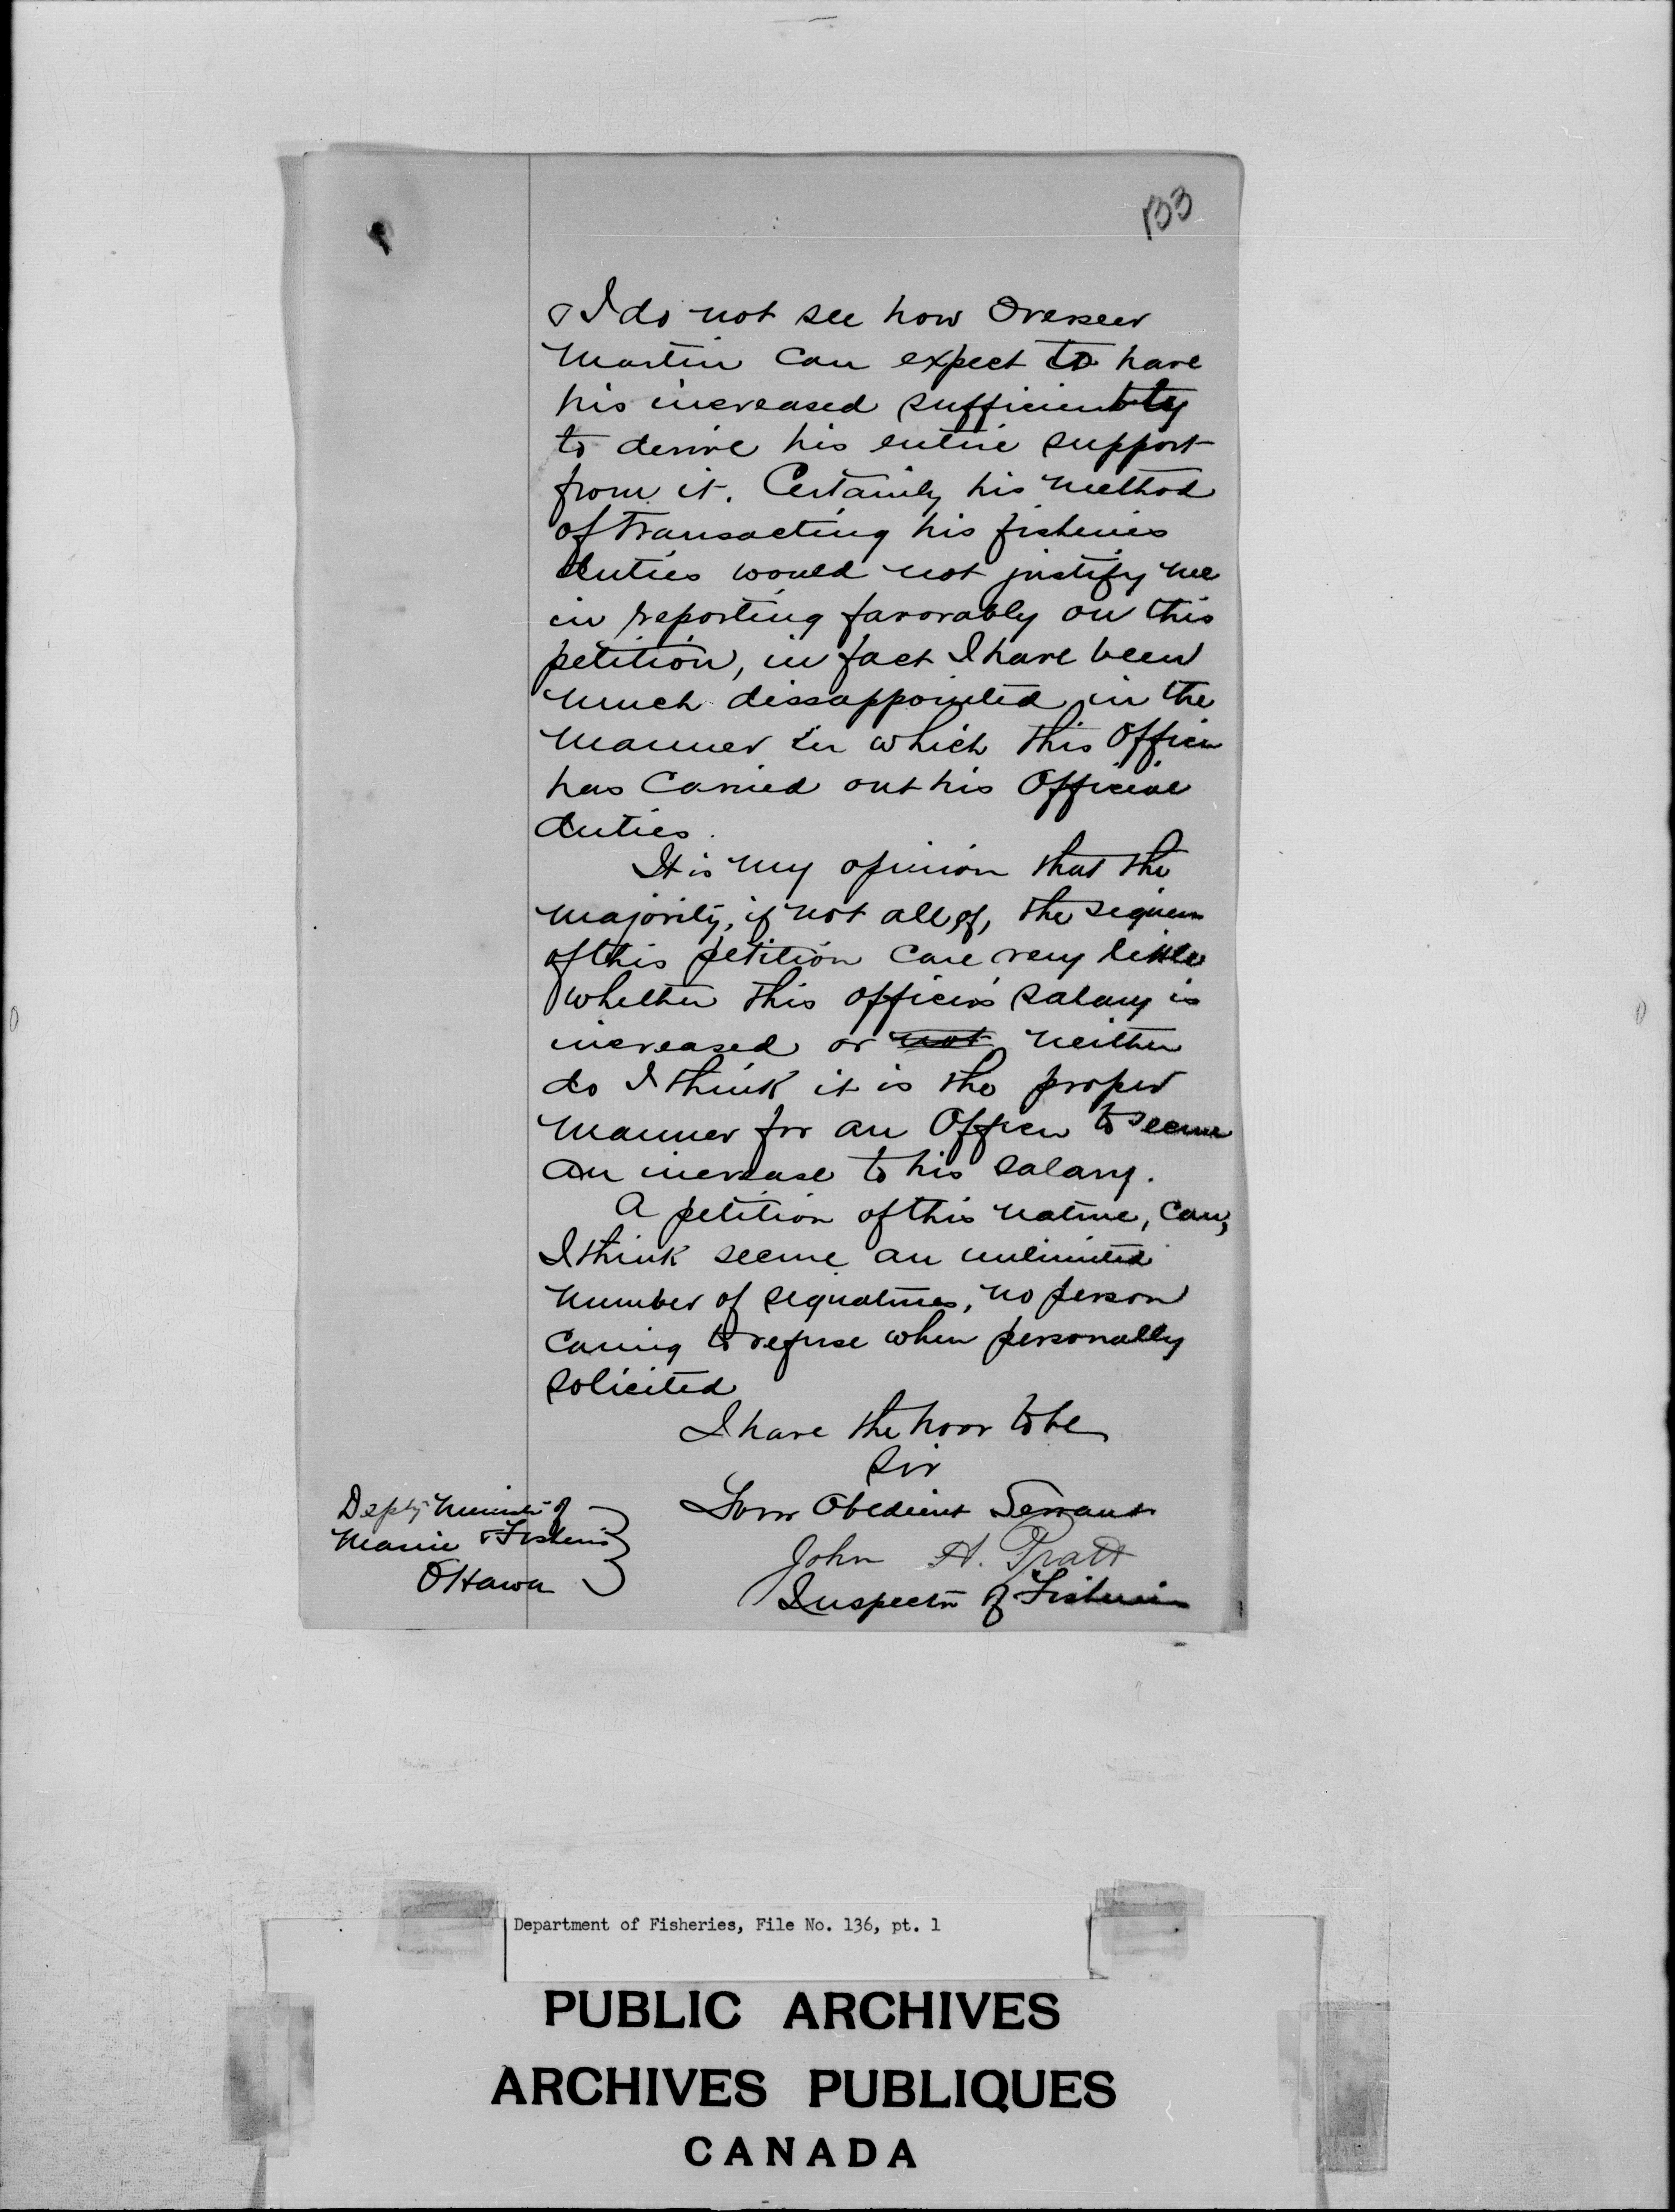 133
& I do not see how Overseer
Martin can expect to have
his increased sufficiently
to derive his entire support
from it. Certainly his method
of transacting his fisheries
duties would not justify me
in reporting favorably on this
petition, in fact I have been
much dissappointed in the
manner in which this Officer
has carried out his Official
duties.
It is my opinion that the
majority, if not all of, the signers
of this petition care very little
whether this officer's salary is
increased or not neither
do I think it is the proper
manner for an Officer to secure
an increase to his salary.
A petition of this nature, can,
I think secure an unlimited
number of signatures, no person
caring to refuse when personally
solicited
I have the honor to be
Sir
Your Obedient Servant
John H. Pratt
Inspector of Fisheries
Depty Minister of
Marine & Fisheries
Ottawa
Department of Fisheries, File No. 136, pt. 1
PUBLIC ARCHIVES
ARCHIVES PUBLIQUES
CANADA